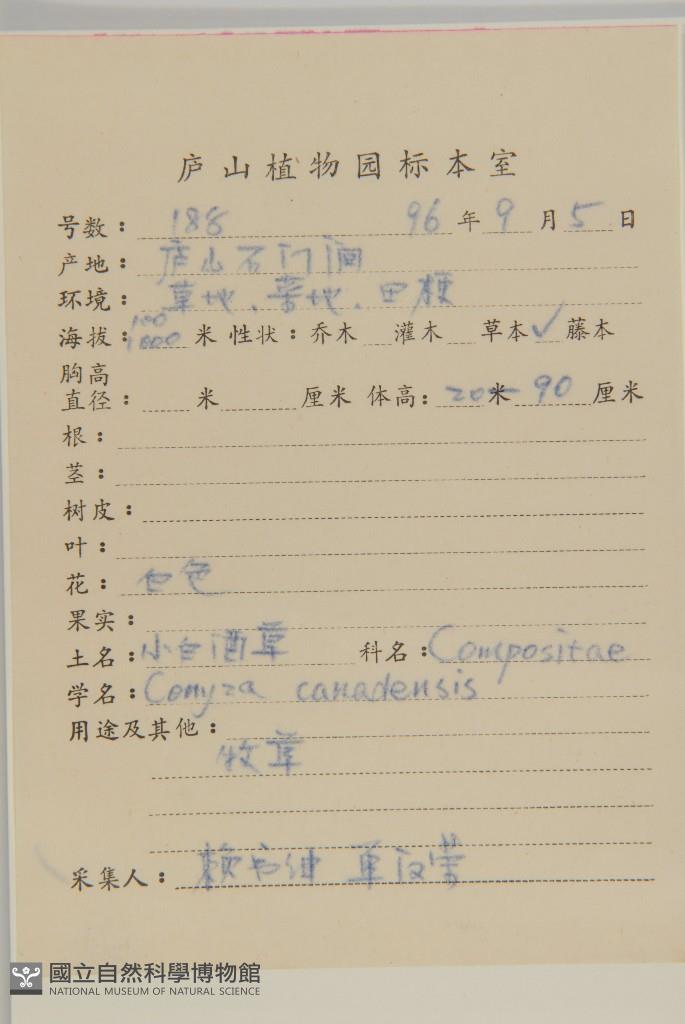 庐山植物园标本室
号数：188 96年9月5日
产地：庐山石门涧
环境：草地、荒地、田梗
海拔：100 1000米 性状：乔木 灌木 草本✓藤本
胸高
直径：米 厘米 体高：20米90厘米
根：
茎：
树皮：
叶：
花：白色
果实：
土名：小白酒草 科名：Compositae
学名：Conyza canadensis
用途及其他：
牧草
采集人：赖书绅 单汉荣
國立自然科學博物館
NATIONAL MUSEUM OF NATURAL SCIENCE